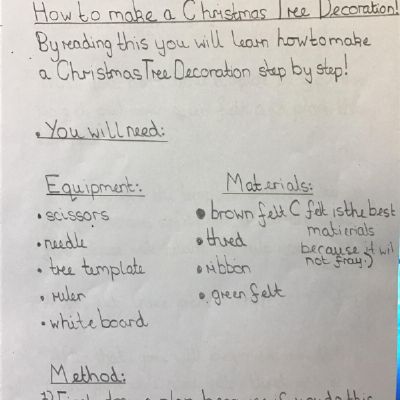 How to make a Christmas Tree Decoration!
By reading this you will learn how to make
a Christmas Tree Decoration step by step!
• You will need:
Equipment: Materials:
• scissors • brown felt ( felt is the best
materials
• needle • thred because it wil
not fray.)
• tree template • ribbon
• ruler • green felt
• white board
Method: